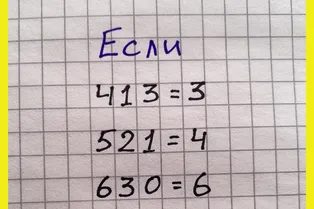 Если
413=3
521=4
630=6